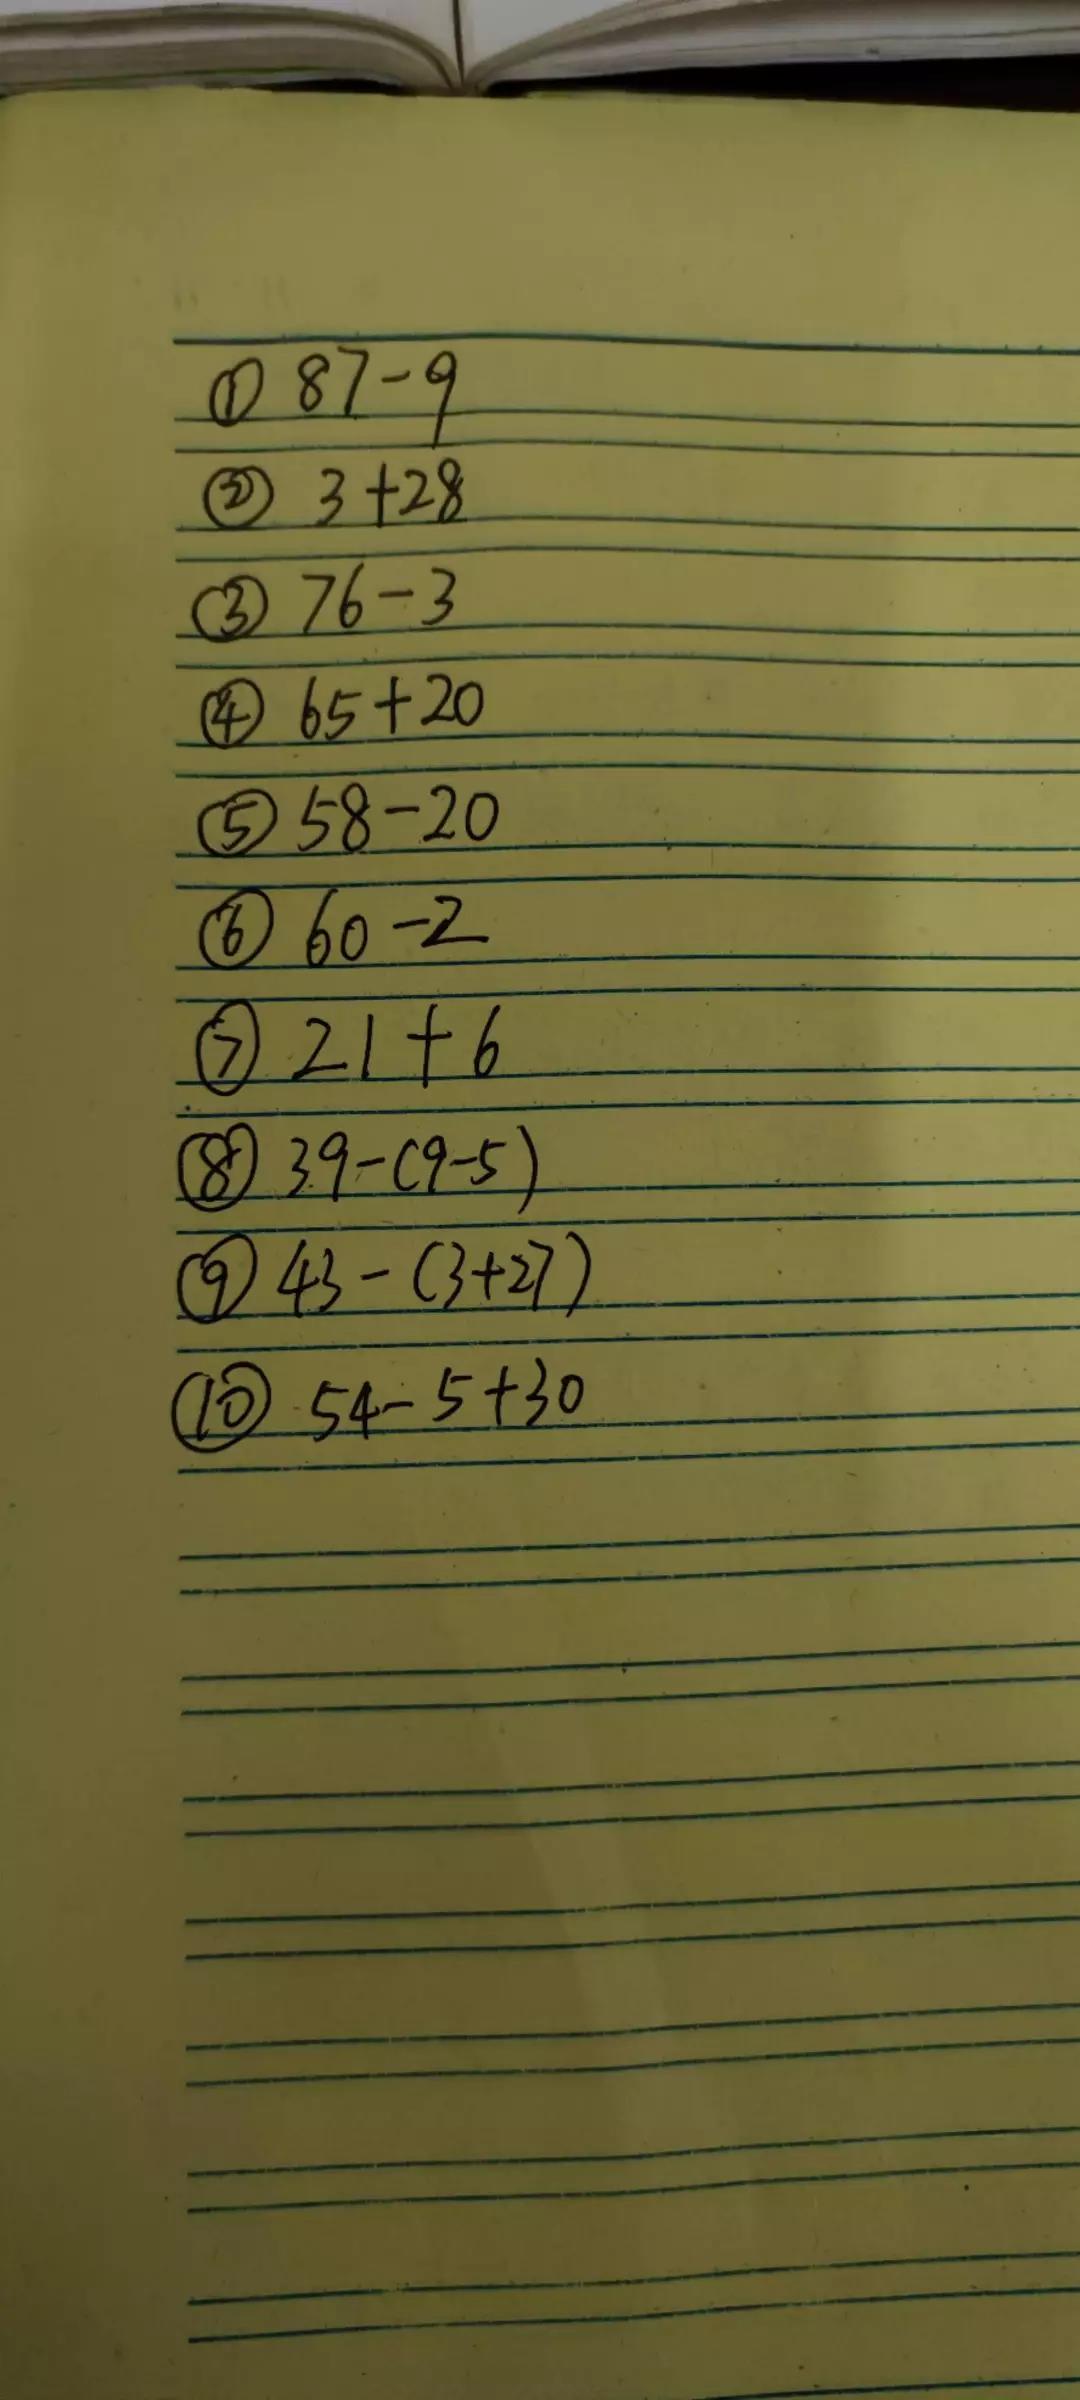 ① 87-9
② 3+28
③ 76-3
④ 65+20
⑤ 58-20
⑥ 60-2
⑦ 21+6
⑧ 39-(9-5)
⑨ 43-(3+27)
⑩ 54-5+30